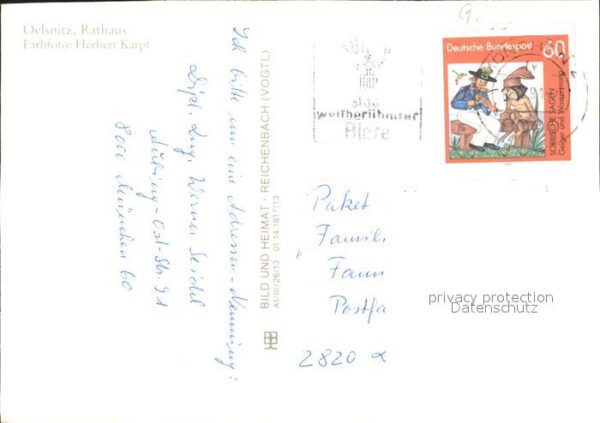 Oelsnitz, Rathaus
Farbfoto: Herbert Karpf
Ich bitte um eine Adressen-Nennung:
Dipl. Ing. Werner Seidel
Aubing-Ost-Str. 91
8000 München 60
BILD UND HEIMAT · REICHENBACH (VOGTL)
A1/III/26/13 01 14 1617/13
9.
weltberühmter
Biere
Deutsche Bundespost
60
SORBISCHE SAGEN
Geiger und Wassermann
91
Paket
"Famili
Fann
Postfa
2820
privacy protection
Datenschutz